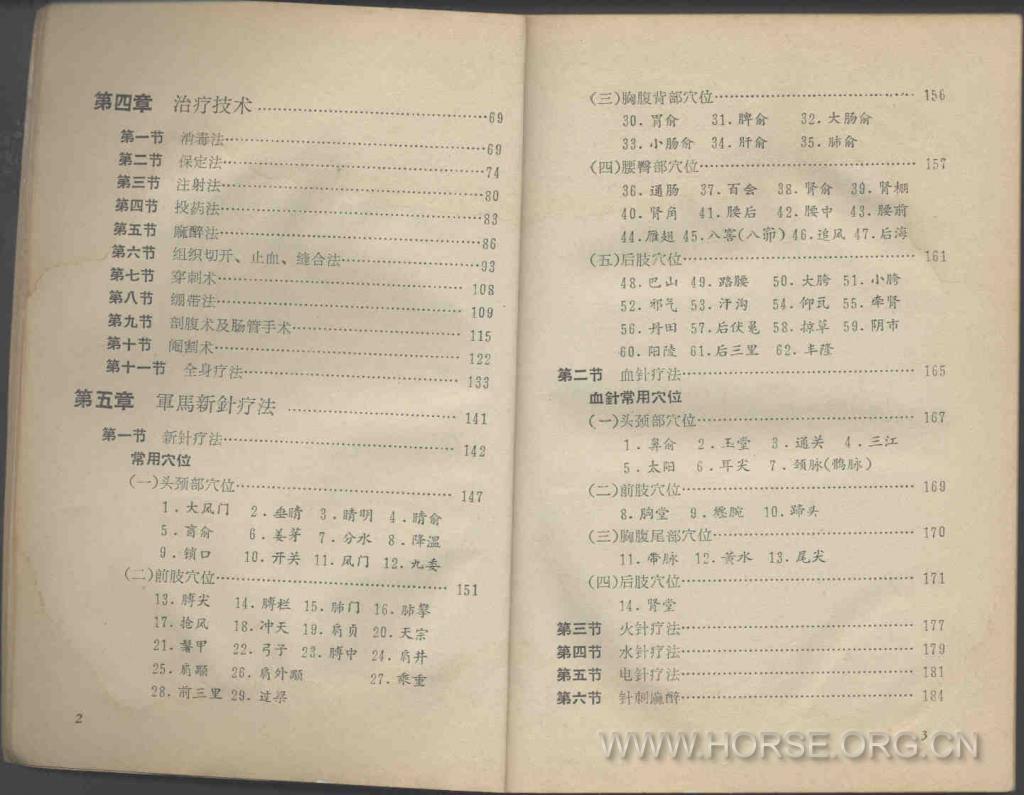 第四章 治疗技术……69
第一节 消毒法……69
第二节 保定法……74
第三节 注射法……80
第四节 投药法……83
第五节 麻醉法……86
第六节 组织切开、止血、缝合法……93
第七节 穿刺术……108
第八节 绷带法……109
第九节 剖腹术及肠管手术……115
第十节 阉割术……122
第十一节 全身疗法……133
第五章 軍馬新針疗法……141
第一节 新针疗法……142
常用穴位
(一)头颈部穴位……147
1．大风门 2．垂睛 3．睛明 4．睛俞
5．肓俞 6．姜芽 7．分水 8．降温
9．锁口 10．开关 11．风门 12．九委
(二)前肢穴位……151
13．膊尖 14．膊栏 15．肺门 16．肺攀
17．抢风 18．冲天 19．肩贞 20．天宗
21．鬐甲 22．弓子 23．膊中 24．肩井
25．肩颙 26．肩外颙 27．乘重
28．前三里 29．过梁
2
(三)胸腹背部穴位……156
30．胃俞 31．脾俞 32．大肠俞
33．小肠俞 34．肝俞 35．肺俞
(四)腰臀部穴位……157
36．通肠 37．百会 38．肾俞 39．肾棚
40．肾角 41．腰后 42．腰中 43．腰前
44．雁翅 45．八窖(八窌) 46．追风 47．后海
(五)后肢穴位……161
48．巴山 49．路腰 50．大胯 51．小胯
52．邪气 53．汗沟 54．仰瓦 55．牵肾
56．丹田 57．后伏兔 58．掠草 59．阴市
60．阳陵 61．后三里 62．丰隆
第二节 血针疗法……165
血針常用穴位
(一)头颈部穴位……167
1．鼻俞 2．玉堂 3．通关 4．三江
5．太阳 6．耳尖 7．颈脉(鹘脉)
(二)前肢穴位……169
8．胸堂 9．缠腕 10．蹄头
(三)胸腹尾部穴位……170
11．带脉 12．黄水 13．尾尖
(四)后肢穴位……171
14．肾堂
第三节 火针疗法……177
第四节 水针疗法……179
第五节 电针疗法……181
第六节 针刺麻醉……184
3
WWW.HORSE.ORG.CN